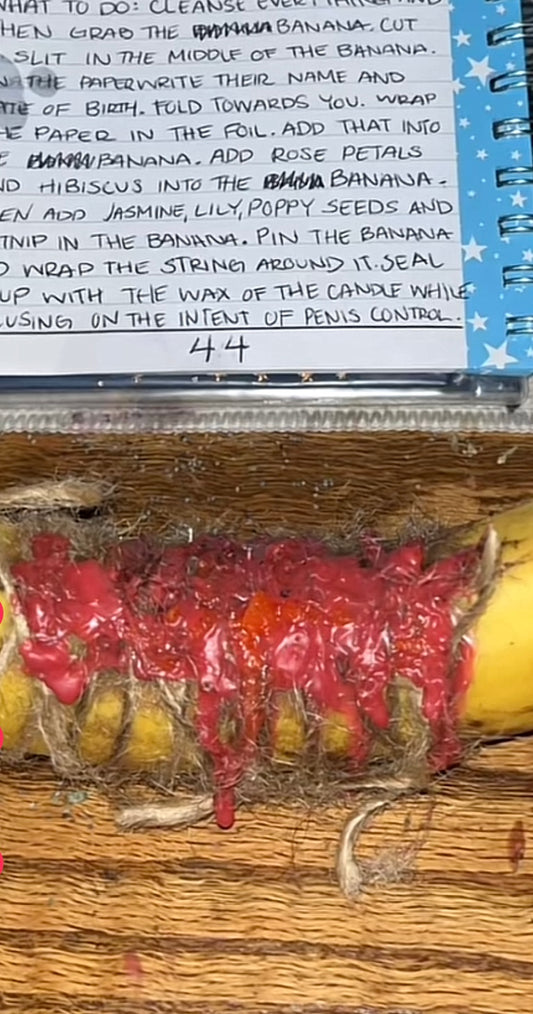 WHAT TO DO: CLEANSE
HEN GRAB THE BANANA. CUT
SLIT IN THE MIDDLE OF THE BANANA.
THE PAPER WRITE THEIR NAME AND
TE OF BIRTH. FOLD TOWARDS YOU. WRAP
HE PAPER IN THE FOIL. ADD THAT INTO
E BANANA. ADD ROSE PETALS
ND HIBISCUS INTO THE BANANA.
EN ADD JASMINE, LILY, POPPY SEEDS AND
TNIP IN THE BANANA. PIN THE BANANA
D WRAP THE STRING AROUND IT. SEAL
UP WITH THE WAX OF THE CANDLE WHILE
CUSING ON THE INTENT OF PENIS CONTROL.
44